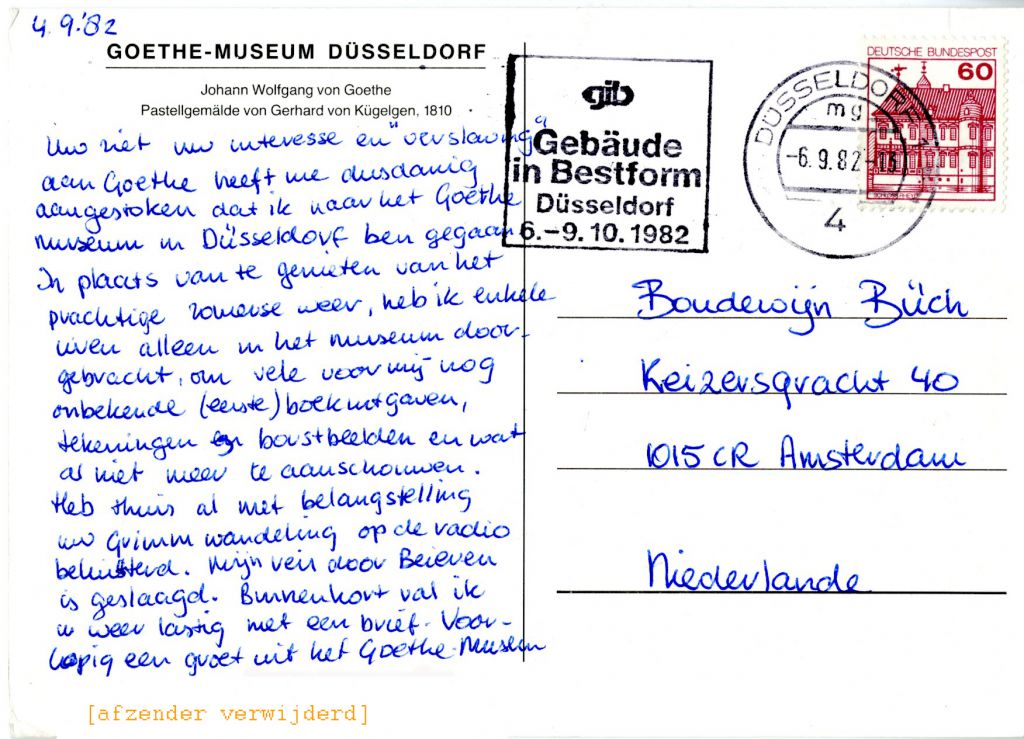 4.9.'82
GOETHE-MUSEUM DÜSSELDORF
Johann Wolfgang von Goethe
Pastellgemälde von Gerhard von Kügelgen, 1810
Uw niet uw interesse en "verslaving"
aan Goethe heeft me dusdanig
aangestoken dat ik naar het Goethe
museum in Düsseldorf ben gegaan
In plaats van te genieten van het
prachtige zomerse weer, heb ik enkele
uren alleen in het museum door-
gebracht, om vele voor mij nog
onbekende (eerste) boekuitgaven,
tekeningen en borstbeelden en wat
al niet meer te aanschouwen.
Heb thuis al met belangstelling
uw Grimm wandeling op de radio
beluisterd. Mijn reis door Beieren
is geslaagd. Binnenkort val ik
u weer lastig met een brief. Voor-
lopig een groet uit het Goethe-Museum
[afzender verwijderd]
gib
Gebäude
in Bestform
Düsseldorf
6.–9.10.1982
DÜSSELDORF 1
mg
-6.9.82-13
4
DEUTSCHE BUNDESPOST
60
Boudewijn Büch
Keizersgracht 40
1015 CR Amsterdam
Niederlande